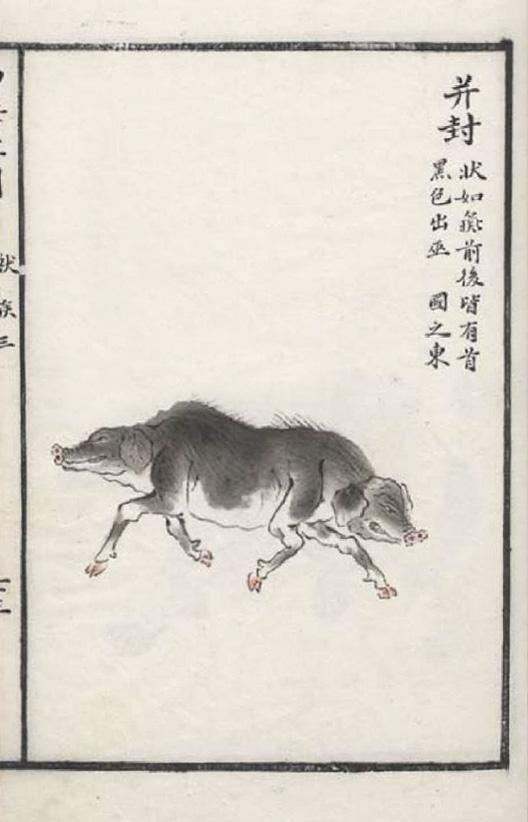 并封
狀如彘前後皆有首
黑色出巫 國之東
獸族三